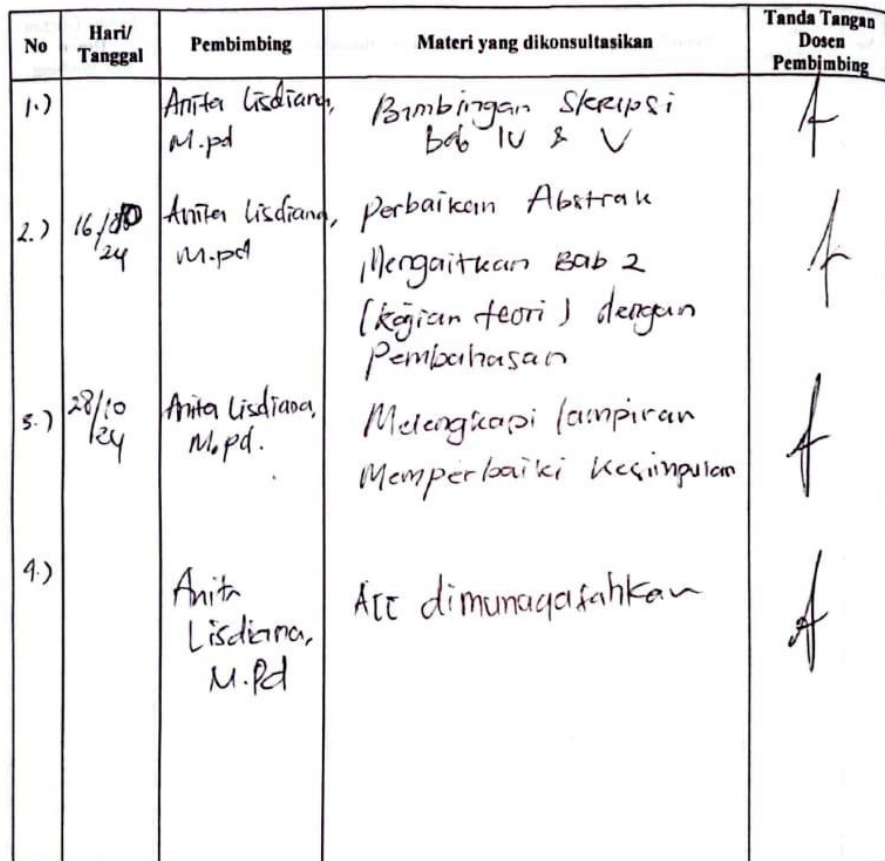 No
Hari/
Tanggal
Pembimbing
Materi yang dikonsultasikan
Tanda Tangan
Dosen
Pembimbing
1.)
Anita Lisdiana,
M.pd
Bimbingan Skripsi
bab IV & V
2.)
16/
24
Anita Lisdiana,
M.pd
Perbaikan Abstrak
Mengaitkan Bab 2
(kajian teori) dengan
Pembahasan
3.)
28/10
/24
Anita Lisdiana,
M.pd.
Melengkapi lampiran
Memperbaiki Kesimpulan
4.)
Anita
Lisdiana,
M.Pd
Acc dimunaqasahkan